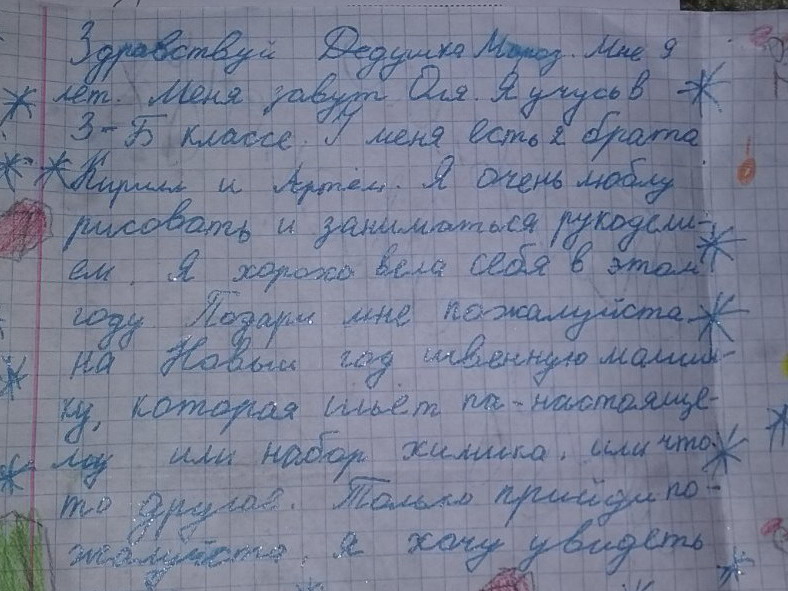 Здравствуй Дедушка Мороз. Мне 9
лет. Меня завут Оля. Я учусь в
3-Б классе. У меня есть 2 брата
Кирилл и Артём. Я очень люблу
рисовать и заниматься рукодели-
ем. Я хорохо вела себя в этом
году. Подари мне пожалуйста
на Новый год швенную машин-
ку, которая шьёт па-настояще-
му или набор химика, или что-
то другое. Только прийди по-
жалуйста, я хочу увидеть